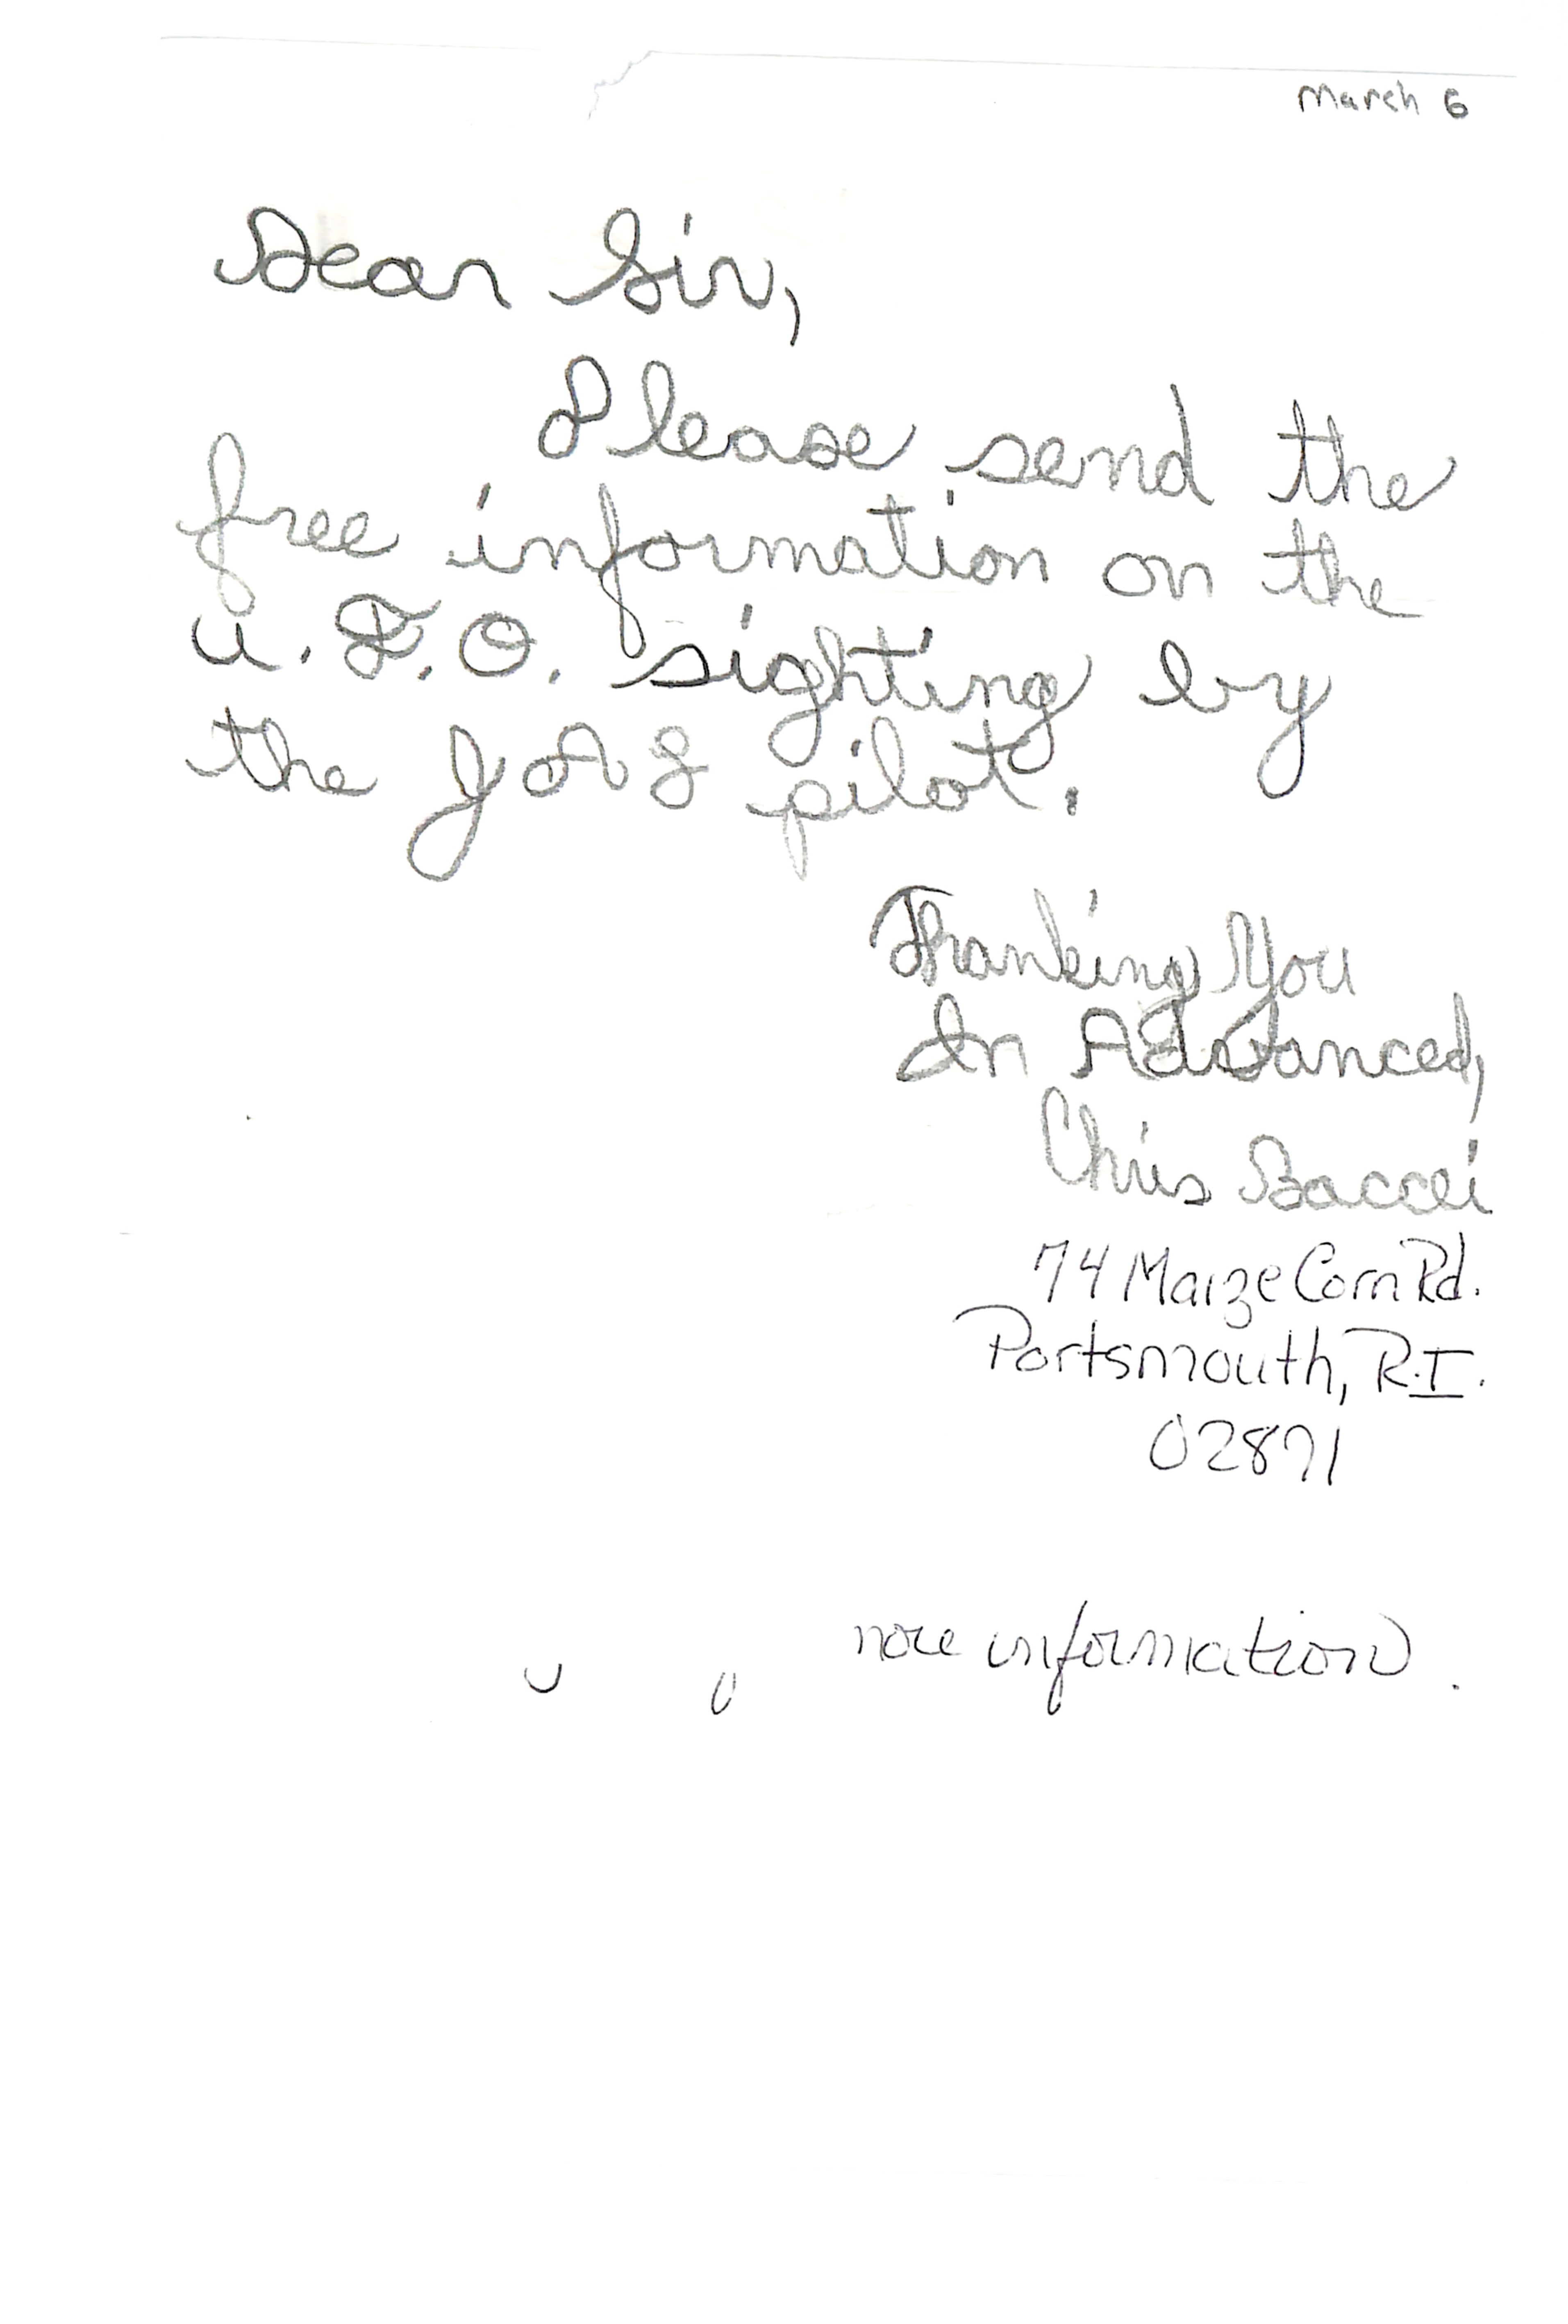 March 6
Dear Sir,
Please send the
free information on the
U.F.O. sighting by
the JAL pilot.
Thanking You
In Advanced,
Chris Baccei
74 Maize Corn Rd.
Portsmouth, R.I.
02871
more information.